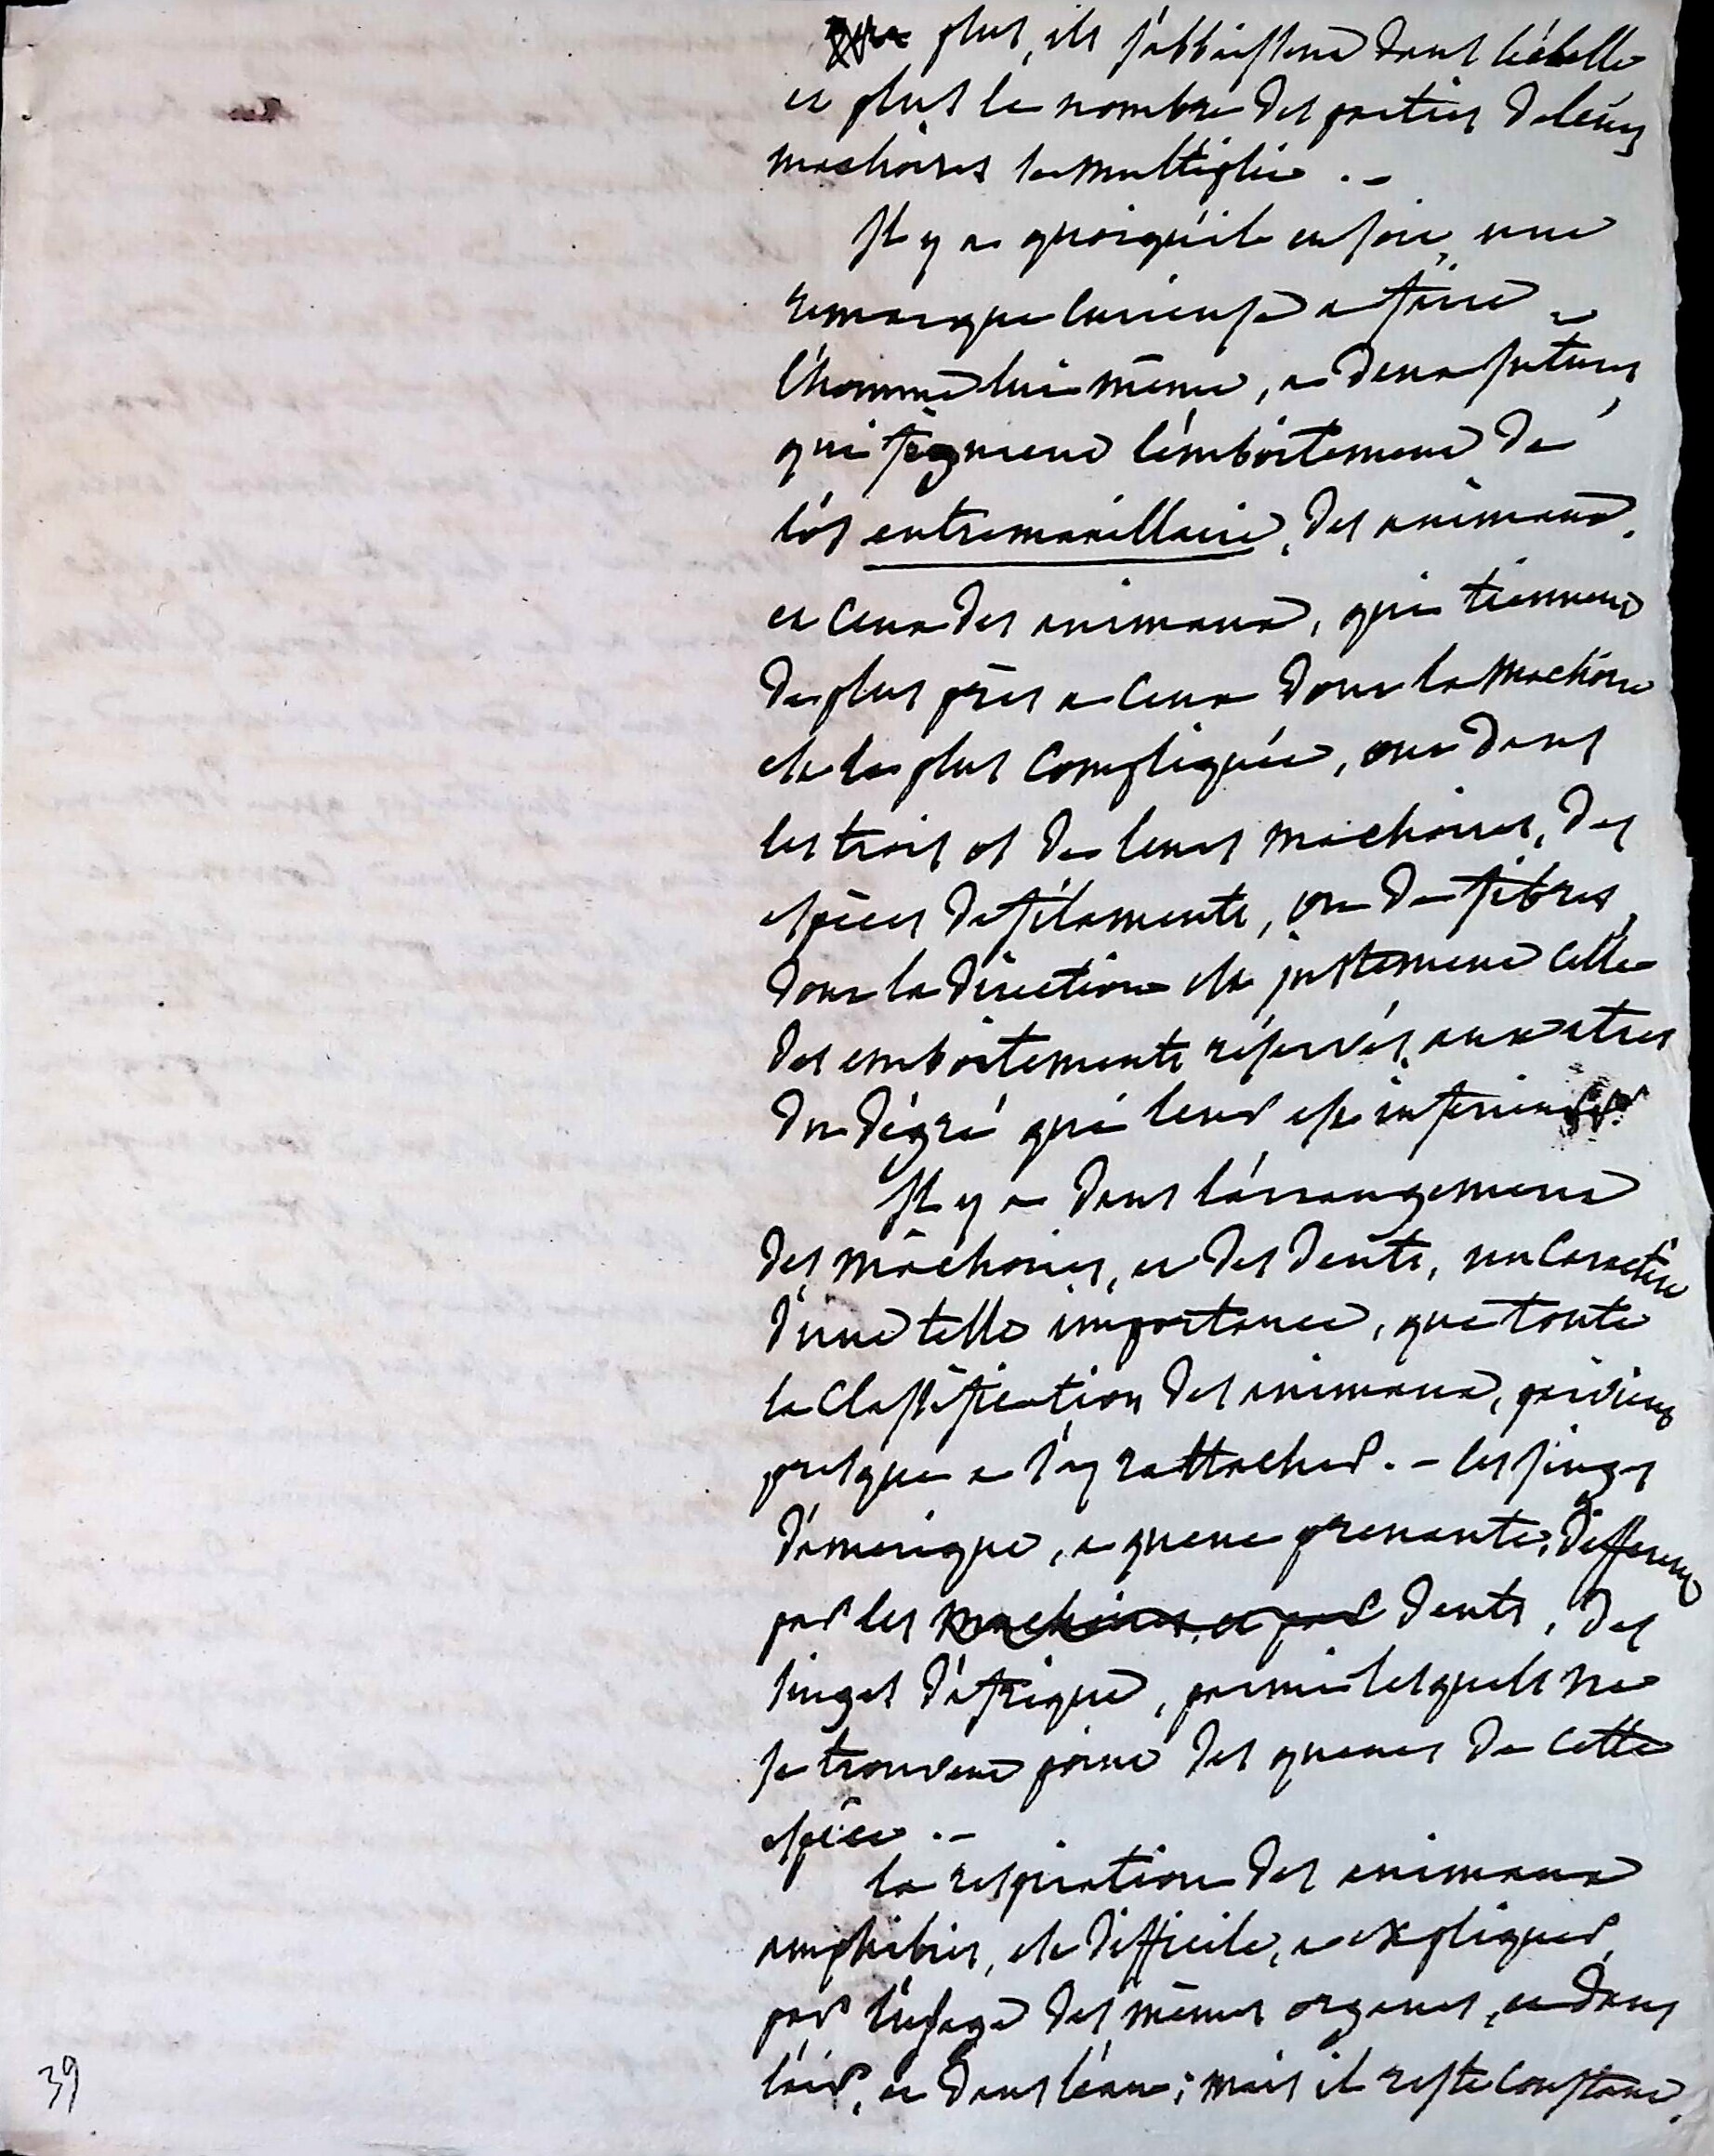 plus, ils s'abbaissent dans l'échelle
et plus le nombre des parties de leurs
machoires se multiplie. -
Il y a quoiqu'il en soit, une
remarque curieuse a faire -
l'homme lui même, a deux sutures,
qui figurent l'emboitement de
l'os entremaxillaire, des animaux.
et ceux des animaux, qui tiennent
de plus près a ceux dont la machoire
est la plus compliquée, ont dans
les trois os de leurs machoires, des
espèces de filaments, ou de fibres,
dont la direction est justement celle
des emboitements réservés, aux etres
du dégré qui leur est inferieur.
Il y a dans l'arrangement
des mâchoires, et des dents, un caractère
d'une telle importance, que toute
la classification des animaux, parvient
presque a s'y rattacher. - les singes
d'amerique, a queue prenante, different
par les machoires, et par dents, des
singes d'afrique, parmi lesquels ne
se trouvent point des queues de cette
espèce. -
la respiration des animaux
amphibies, est difficile, a expliquer,
par l'usage des mêmes organes, et dans
l'air, et dans l'eau; mais il reste constant,
39